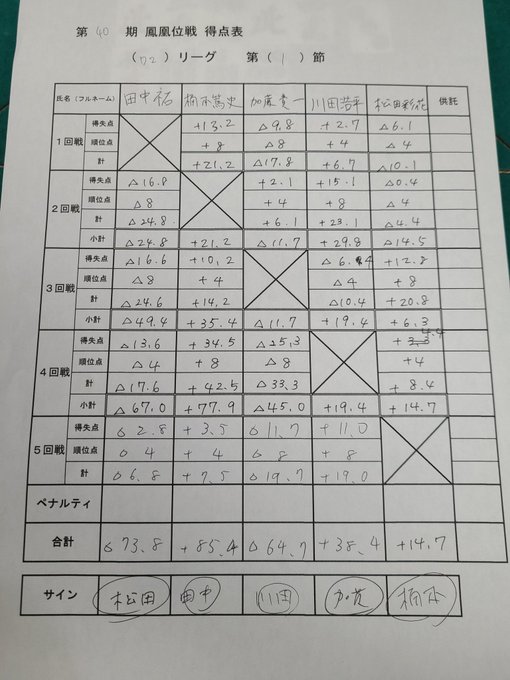 第 40 期 鳳凰位戦 得点表
（D2）リーグ 第（1）節
氏名（フルネーム） 田中祐 桶本篤史 加藤貴一 川田浩平 松田彩花 供託
1回戦
得失点 +13.2 △9.8 +2.7 △6.1
順位点 +8 △8 +4 △4
計 +21.2 △17.8 +6.7 △10.1
2回戦
得失点 △16.8 +2.1 +15.1 △0.4
順位点 △8 +4 +8 △4
計 △24.8 +6.1 +23.1 △4.4
小計 △24.8 +21.2 △11.7 +29.8 △14.5
3回戦
得失点 △16.6 +10.2 △6.4 +12.8
順位点 △8 +4 △4 +8
計 △24.6 +14.2 △10.4 +20.8
小計 △49.4 +35.4 △11.7 +19.4 +6.3
4回戦
得失点 △13.6 +34.5 △25.3 +4.4
順位点 △4 +8 △8 +4
計 △17.6 +42.5 △33.3 +8.4
小計 △67.0 +77.9 △45.0 +19.4 +14.7
5回戦
得失点 △2.8 +3.5 △11.7 +11.0
順位点 △4 +4 △8 +8
計 △6.8 +7.5 △19.7 +19.0
ペナルティ
合計 △73.8 +85.4 △64.7 +38.4 +14.7
サイン 松田 田中 川田 加藤 桶本